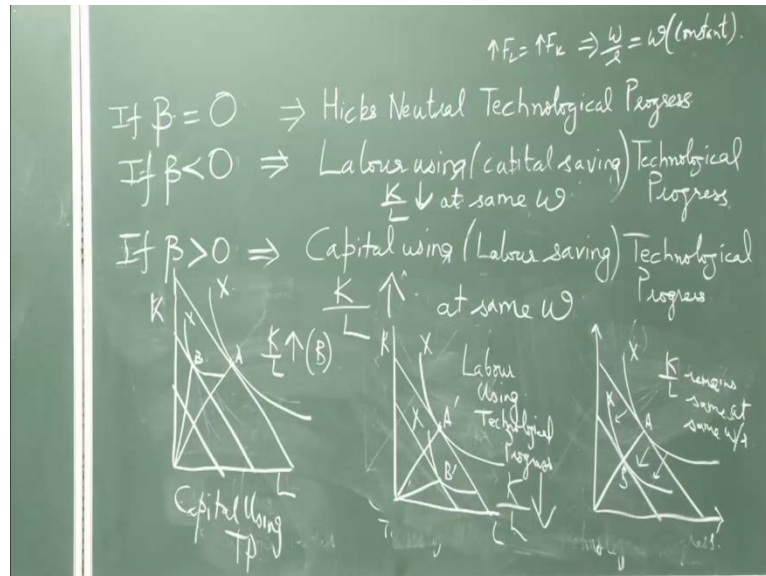 ↑F_L = ↑F_K ⇒ w/r = ω (constant).
If β = 0 ⇒ Hicks Neutral Technological Progress
If β < 0 ⇒ Labour using (capital saving) Technological Progress
K/L ↓ at same ω
If β > 0 ⇒ Capital using (Labour saving) Technological Progress
K/L ↑ at same ω
K
X
X
B
A
K/L ↑ (B)
L
Capital Using
TP
K
X
X
A'
B'
Labour
Using
Technological
Progress
K/L ↓
L
X
X
A
B
K/L remains
same at
same w/r